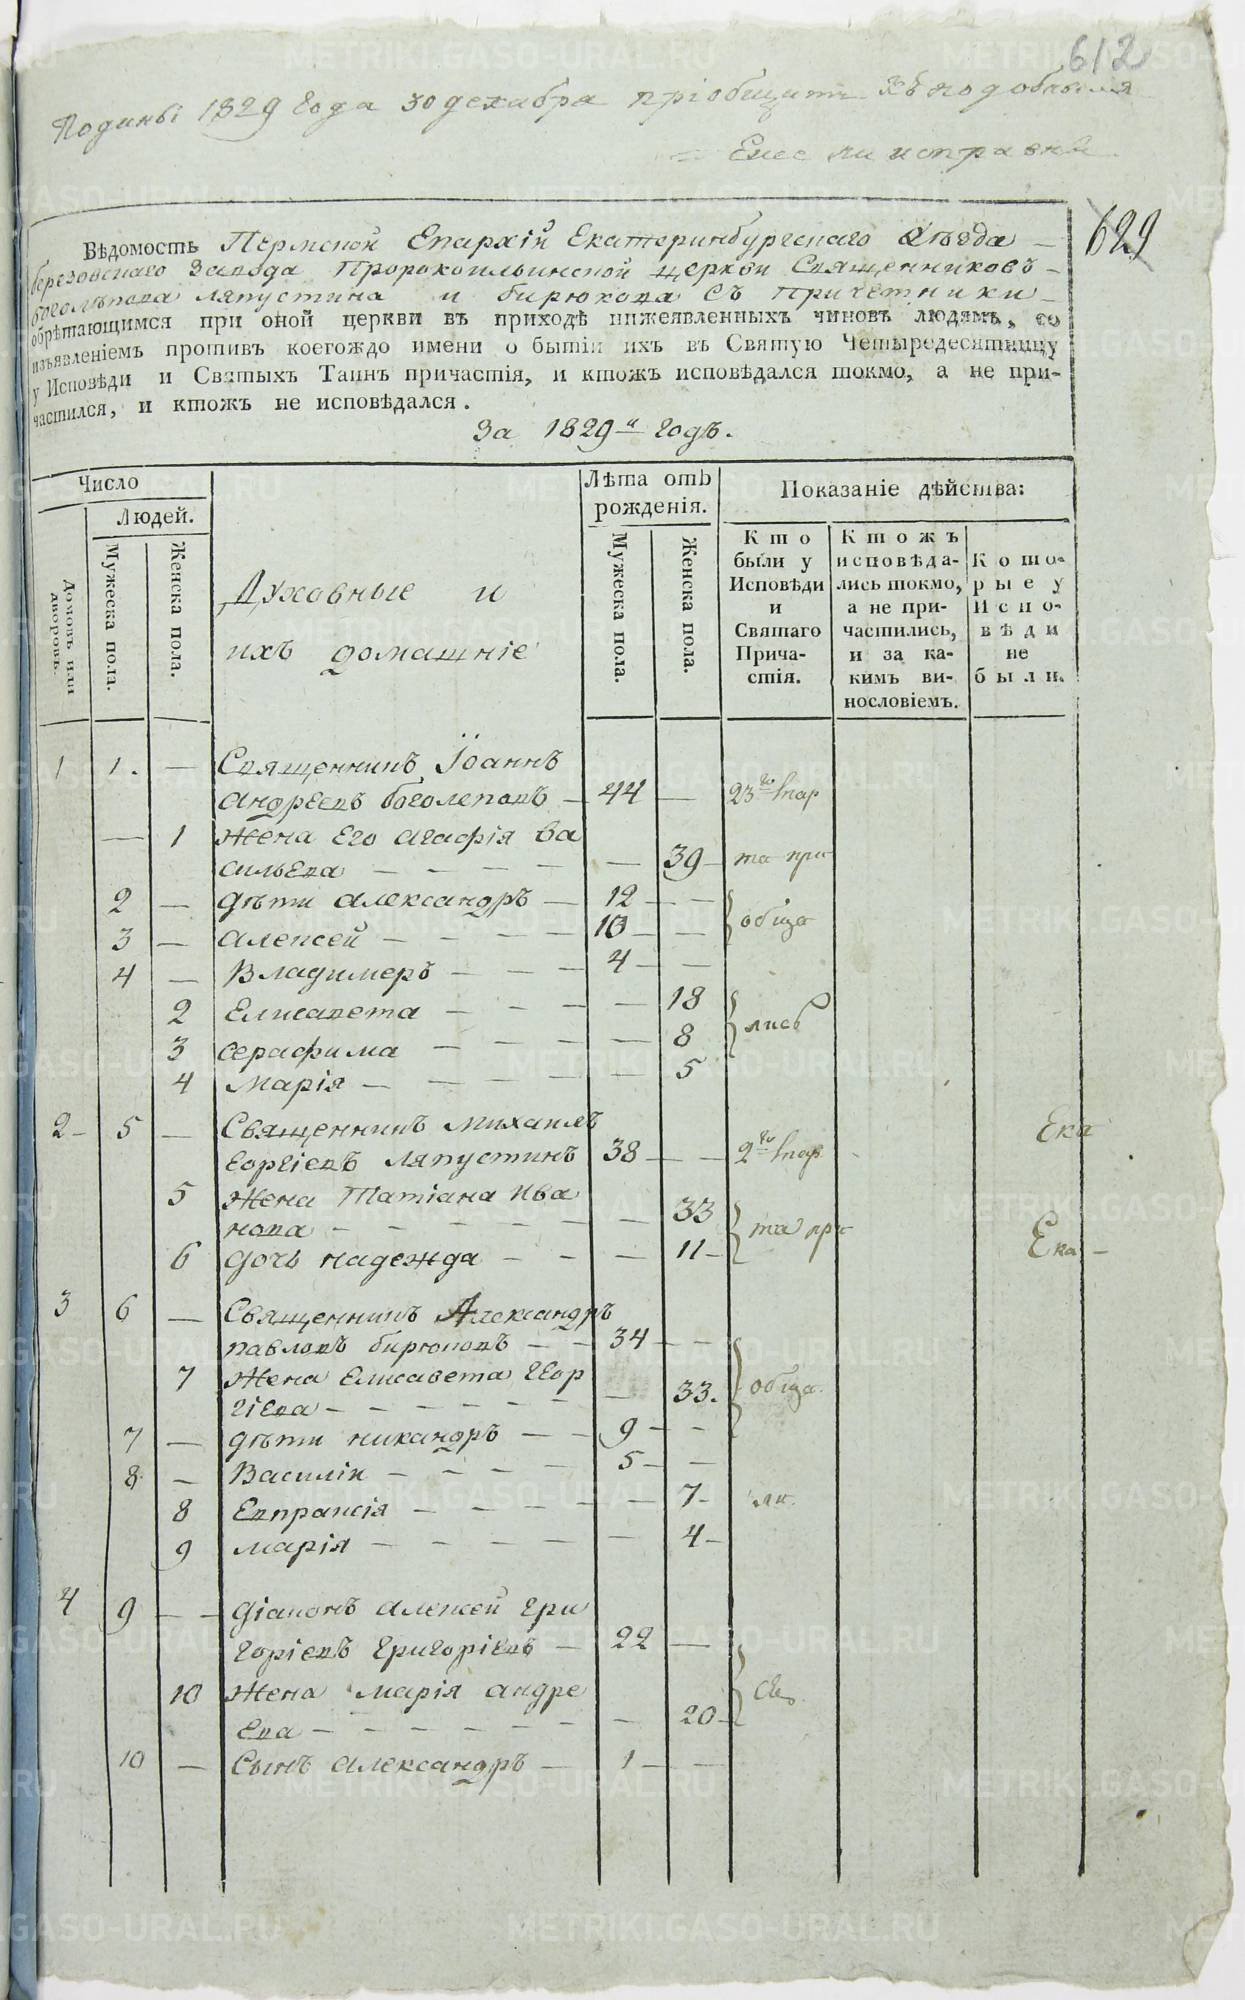 612
Поданы 1829 года 30 декабря пріобщить къ подобнымъ
629
Вѣдомость Пермской Епархіи Екатеринбургскаго Уѣзда
березовскаго завода Пророкоильинской церкви Священниковъ
боголѣпова ляпустина и бирюкова съ причетники
обрѣтающимся при оной церкви въ приходѣ нижеявленныхъ чиновъ людямъ, со
изъявленіемъ противъ коегождо имени о бытіи ихъ въ Святую Четыредесятницу
у Исповѣди и Святыхъ Таинъ причастія, и ктожъ исповѣдался токмо, а не при-
частился, и ктожъ не исповѣдался.
За 1829й годъ.
Число
Людей.
Домовъ или дворовъ.
Мужеска пола.
Женска пола.
Духовные и
ихъ домашніе
Лѣта отъ
рожденія.
Мужеска пола.
Женска пола.
Показаніе дѣйства:
Кто
были у
Исповѣди
и
Святаго
Прича-
стія.
Ктожъ
исповѣда-
лись токмо,
а не при-
частились,
и за ка-
кимъ ви-
нословіемъ.
Кото-
рые у
Испо-
вѣди
не
были.
1 1. — Священникъ Іоаннъ
Андреевъ боголеповъ — 44 — 23го мар
— 1 жена Его агафія Ва
сильева — — 39 та при
2 — дѣти александръ — 12 — —
3 — алексей — 10 — — обща
4 — Владимеръ — 4 — —
2 Елисавета — — 18
3 серафима — — 8 лись
4 марія — — 5
2 5 — Священникъ михаилъ
еоргіевъ ляпустинъ 38 — — 2го мар
Ека
5 жена Татіана Ива
нова — — 33 та при
6 дочь надежда — — 11
Ека
3 6 — Священникъ Александръ
павловъ бирюковъ — 34 — —
7 жена Елисавета геор
гіева — — 33. обща
7 — дѣти никандръ — 9 — —
8 — Василій — 5 — —
8 Евпраксія — — 7 ли
9 марія — — 4
4 9 — діаконъ алексей гри
горіевъ григоріевъ — 22 —
10 жена марія андре
ева — — 20
10 — Сынъ александръ — 1 — —